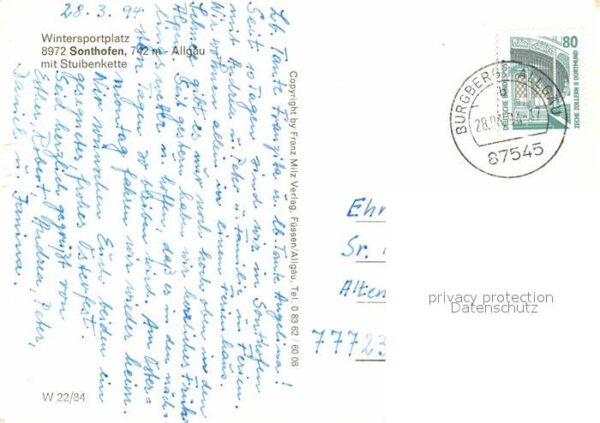 28.3.94
Wintersportplatz
8972 Sonthofen, 742 m - Allgäu
mit Stuibenkette
Lb. Tante Franziska u. lb. Tante Angelina!
Seit 10 Tagen sind wir in Sonthofen
mit Andrea u. Peter u. Familie in Ferien.
Wir wohnen allen in einem Ferienhaus.
Schnee gibt es nur noch hoch oben in den
Alpen. Seit gestern haben wir herrliches Früh-
lingswetter u. hoffen, daß es in den näch-
sten Tagen so bleiben wird. Am Oster-
montag fahren wir wieder heim.
Wir wünschen Euch beiden ein
gesegnetes frohes Osterfest.
Seid herzlich gegrüßt von
Esther, Robert, Andrea, Peter,
Daniel u. Janina.
Copyright by Franz Milz Verlag, Füssen/Allgäu, Tel. 0 83 62 / 60 08
W 22/84
80
DEUTSCHE BUNDESPOST
ZECHE ZOLLERN II DORTMUND
BURGBERG I ALLGÄU
87545
Ehr
Sr.
Alten
7772
privacy protection
Datenschutz